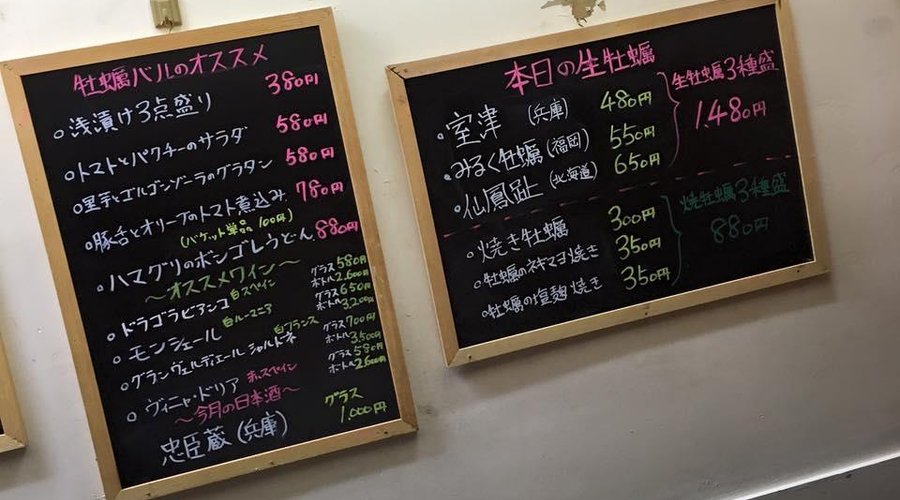 牡蠣バルのオススメ
○浅漬け3点盛り 380円
○トマトとパクチーのサラダ 580円
○里芋とゴルゴンゾーラのグラタン 580円
○豚舌とオリーブのトマト煮込み 780円
(バケット単品100円)
○ハマグリのボンゴレうどん 880円
〜オススメワイン〜
○ドラゴラビアンコ 白スペイン グラス580円 ボトル2,600円
○モンシェール 白ルーマニア グラス650円 ボトル3,200円
○グランヴェルディエール シャルドネ 白フランス グラス700円 ボトル3,500円
○ヴィニャ・ドリア 赤スペイン グラス580円 ボトル2,600円
〜今月の日本酒〜
忠臣蔵(兵庫) グラス 1,000円
本日の生牡蠣
○室津 (兵庫) 480円
○みるく牡蠣(福岡) 550円
○仙鳳趾 (北海道) 650円
生牡蠣3種盛
1,480円
○焼き牡蠣 300円
○牡蠣のネギマヨ焼き 350円
○牡蠣の塩麹焼き 350円
焼牡蠣3種盛
880円